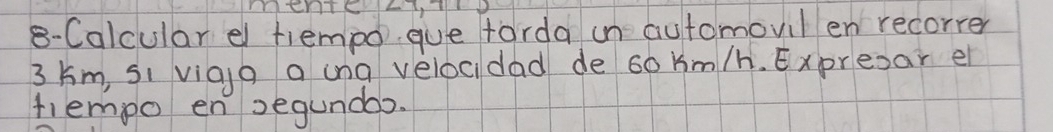 8-Calcular el tiempo que tarda un automovil en recorrer
3 Km, si viaja a una velocidad de 60 Km/h. Expresar el
tiempo en segundos.